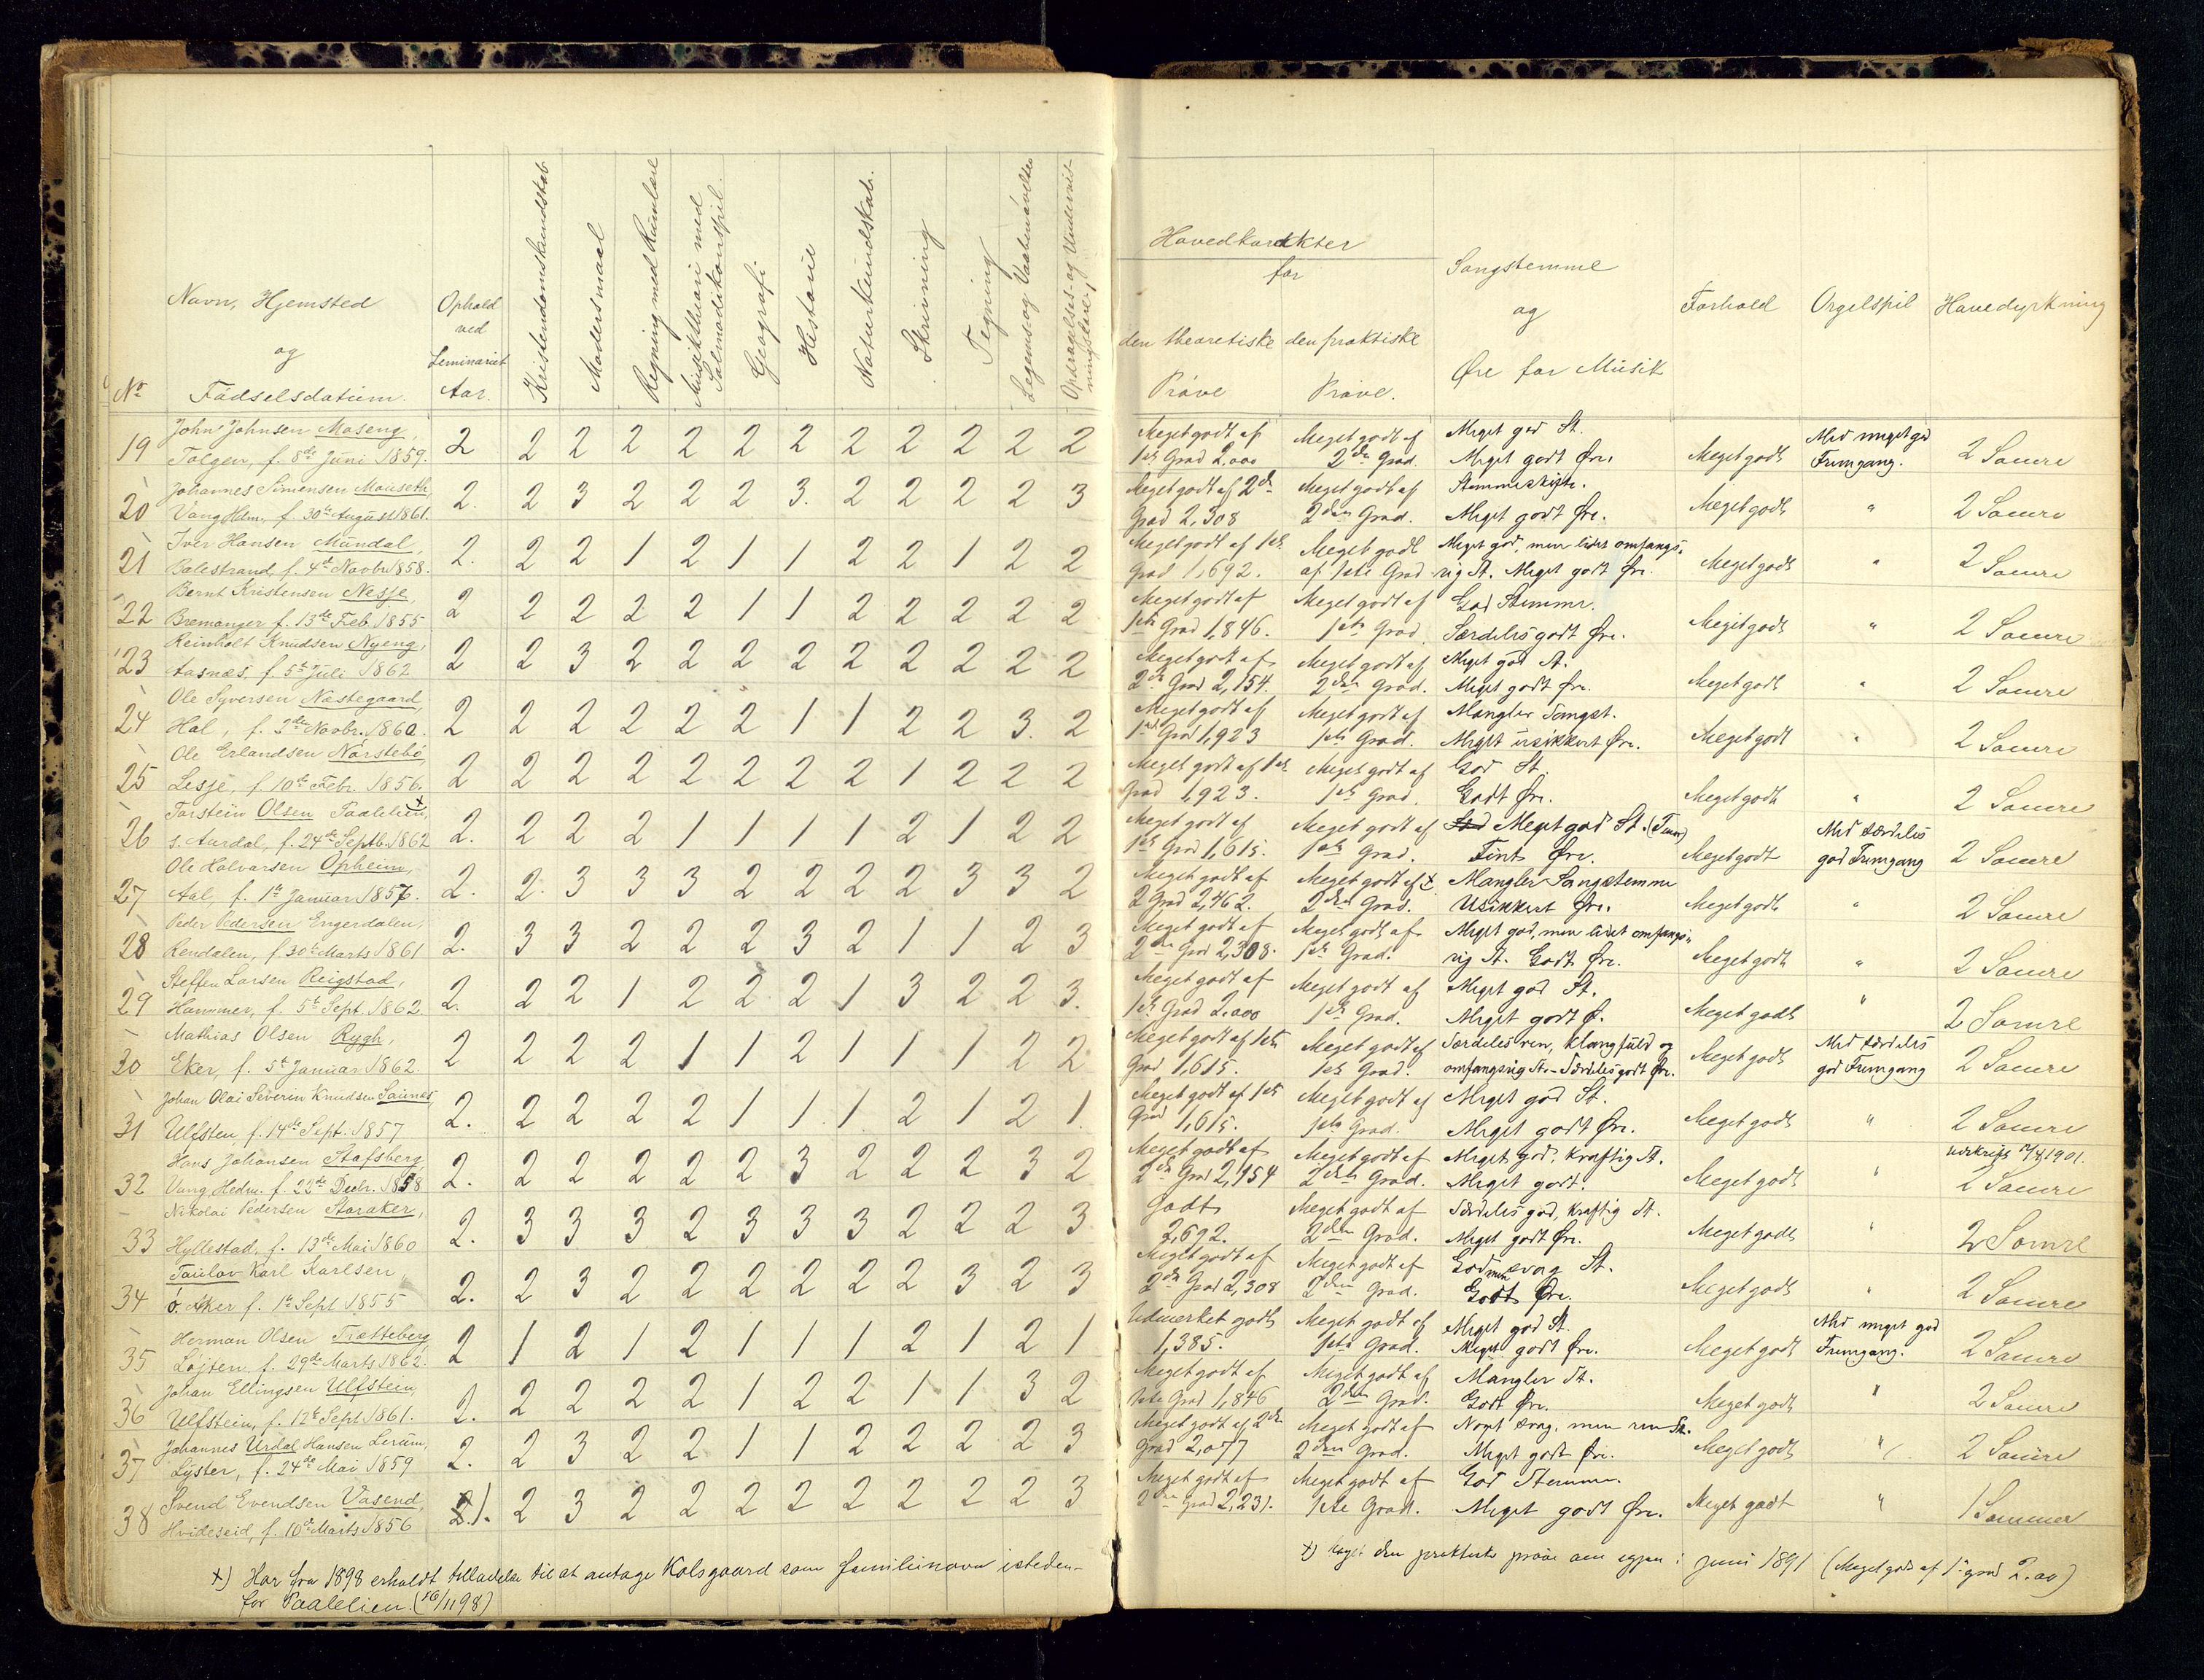 No
Navn, Hjemsted
og
Fødselsdatum.
Ophold
ved
Seminariet
Aar.
Kristendomskundskab
Modersmaal
Regning med Rumlære
Musiktheori med
Salmodikonspil.
Geografi
Historie
Naturkundskab.
Skrivning
Tegning
Legems- og Vaabenøvelser
Opdragelses- og Undervis-
ningslære
Hovedkarakter
for
den theoretiske
Prøve
den praktiske
Prøve.
Sangstemme
og
Øre for Musik
Forhold
Orgelspil
Havedyrkning
John Johnsen Moseng, Meget godt af Meget godt af Meget god St. Med meget god
19 Tolgen, f. 8de Juni 1859. 2 2 2 2 2 2 2 2 2 2 2 2 1ste Grad 2,000 2den Grad. Meget godt Øre. Meget godt Fremgang. 2 Somre
Johannes Simensen Mauseth, Meget godt af 2den Meget godt af
20 Vang Hdm. f. 30te August 1861. 2. 2 3 2 2 2 3. 2 2 2 2 3 Grad 2,308 2den Grad. Meget godt Øre. Meget godt " 2 Somre
Iver Hansen Mundal, Meget godt af 1ste Meget godt Meget god, men lidet omfangs-
21 Balestrand, f. 4de Novbr. 1858. 2. 2 2 1 2 1 1 2 2 1 2 2 Grad 1,692. af 1ste Grad rig St. Meget godt Øre. Meget godt " 2 Somre
Bernt Kristensen Nesje, Meget godt af Meget godt af God Stemme.
22 Bremanger f. 13de Feb. 1855 2 2 2 2 2 1 1 2 2 2 2 2 1ste Grad 1,846. 1ste Grad Særdeles godt Øre. Meget godt " 2 Somre
Reinholt Knudsen Nyeng, Meget godt af Meget godt af Meget god St.
23 Aasnæs, f. 5te Juli 1862 2 2 3 2 2 2 2 2 2 2 2 2 2den Grad 2,154. 2den Grad. Meget godt Øre. Meget godt " 2 Somre
Ole Syversen Næstegaard, Meget godt af Meget godt af Mangler Sangst.
24 Hol, f. 2den Novbr. 1860. 2 2 2 2 2 2 1 1 2 2 3. 2 1ste Grad 1,923 1ste Grad. Meget usikkert Øre. Meget godt " 2 Somre
Ole Erlandsen Norstebø, Meget godt af 1ste Meget godt af God St.
25 Lesje, f. 10de Febr. 1856. 2 2 2 2 2 2 2 2 1 2 2 2 Grad 1,923. 1ste Grad. Godt Øre. Meget godt " 2 Somre
Torstein Olsen Paalelien, x Meget godt af Meget godt af God Meget god St. (Tenor) Med særdeles
26 s. Aurdal, f. 24de Septb. 1862 2. 2 2 2 1 1 1 1 2 1 2 2 1ste Grad 1,615. 1ste Grad. Fint Øre. Meget godt god Fremgang 2 Somre
Ole Halvarsen Opheim, Meget godt af Meget godt af x Mangler Sangstemme
27 Aal, f. 1ste Januar 1857. 2. 2. 3 3 3 2 2 2 2 3 3 2 2 Grad 2,462. 2den Grad. Usikkert Øre. Meget godt " 2 Somre
Peder Pedersen Engerdalen, Meget godt af Meget godt af Meget god, men lidet omfangs-
28 Rendalen, f. 30te Marts 1861 2. 3 3 2 2 2 3 2 1 1 2 3 2den Grad 2,308. 1ste Grad. rig St. Godt Øre. Meget godt " 2 Somre
Steffen Larsen Reigstad, Meget godt af Meget godt af Meget god St.
29 Hammer, f. 5te Sept. 1862. 2. 2 2 1 2 2 2 1 3 2 2 3. 1ste Grad 2.000 1ste Grad. Meget godt Ø. Meget godt " 2 Somre
Mathias Olsen Rygh, Meget godt af 1ste Meget godt af Særdeles ren, klangfuld og Med særdeles
30 Eker, f. 5te Januar 1862. 2 2 2 2 1 1 2 1 1 1 2 2 Grad 1,615. 1ste Grad. omfangsrig St. - Særdeles godt Øre. Meget godt god Fremgang 2 Somre
Johan Olai Severin Knudsen Saunes, Meget godt af 1ste Meget godt af Meget god St.
31 Ulfsten, f. 14de Sept. 1857 2. 2 2 2 2 1 1 1 2 1 2 1. Grad 1,615. 1ste Grad. Meget godt Øre. Meget godt " 2 Somre
Hans Johansen Stafsberg, Meget godt af Meget godt af Meget god, kraftig St. 1901.
32 Vang Hedm. f. 22de Decbr. 1858 2. 2 2 2 2 2 3 2 2 2 3 2 2den Grad 2,154 2den Grad. Meget godt. Meget godt " 2 Somre
Nikolai Pedersen Staraker, Godt Meget godt af Særdeles god, kraftig St.
33 Hyllestad, f. 13de Mai 1860 2. 3 3 3 2 3 3 3 2 2 2 3 2,692. 2den Grad. Meget godt Øre. Meget godt " 2 Somre
Taulov Karl Karlsen, Meget godt af Meget godt af God men svag St.
34 ø. Aker f. 1ste Sept 1855 2. 2 3 2 2 2 2 2 2 3 2 3 2den Grad 2,308 2den Grad. Godt Øre. Meget godt " 2 Somre
Herman Olsen Trætteberg, Udmerket godt Meget godt af Meget god St. Med meget god
35 Løjten, f. 29de Marts 1862. 2 1 2 1 2 1 1 1 2 1 2 1 1,385. 1ste Grad. Meget godt Øre. Meget godt Fremgang. 2 Somre
Johan Ellingsen Ulfstein, Meget godt af Meget godt af Mangler St.
36 Ulfstein, f. 12te Sept 1861. 2. 2 2 2 2 1 2 2 1 1 3 2 1ste Grad 1,846 2den Grad. Godt Øre. Meget godt " 2 Somre
Johannes Urdal Hansen Lerum, Meget godt af 2den Meget godt af Noget svag, men ren St.
37 Lyster, f. 24de Mai 1859 2. 2 3 2 2 1 1 2 2 2 2 3 Grad 2,077 2den Grad. Meget godt Øre. Meget godt " 2 Somre
Svend Evendsen Vasend, Meget godt af Meget godt af God Stemme.
38 Hvideseid, f. 10de Marts 1856 2. 1. 2 3 2 2 2 2 2 2 2 2 3 2den Grad 2,231. 1ste Grad. Meget godt Øre. Meget godt " 1 Sommer
x) Har fra 1898 erholdt tilladelse til at antage Kolsgaard som familienavn isteden-
for Paalelien. (16/11 98)
x) den praktiske prøve om igjen i juni 1891 (Meget godt af 1ste grad 2.00)